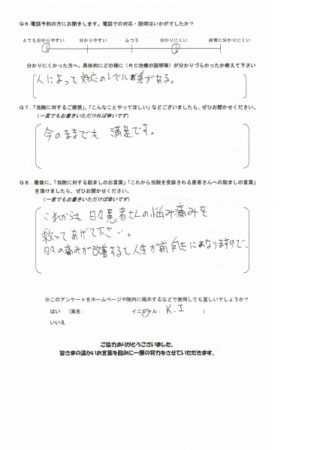 Q6.電話予約の方にお聞きします。電話での対応・説明はいかがでしたか?
とても分かりやすい　分かりやすい　ふつう　分かりにくい　非常に分かりにくい
分かりにくかった方へ、具体的にどの様に(RC治療の説明等)が分かりづらかったか教えて下さい
人によって対応のレベル差がある。
Q7.「当院に対するご感想」、「こんなことやってほしい」などございましたら、ぜひお聞かせください。
(一言でもお書きいただければ幸いです)
今のままでも満足です。
Q8.最後に、「当院に対する励ましのお言葉」「これから当院を受診される患者さんへの励ましの言葉」
を頂けましたら、ぜひお聞かせください。
(一言でもお書きいただければ幸いです)
これからも日々患者さんの悩み痛みを
救ってあげて下さい。
人の痛みが改善すると人生が前向きになりますので。
※このアンケートをホームページや院内に掲示するなどで使用しても宜しいでしょうか?
はい　(実名　イニシャル　K.I　)
いいえ
ご協力ありがとうございました。
皆さまの温かいお言葉を励みに一層の努力をさせていただきます。